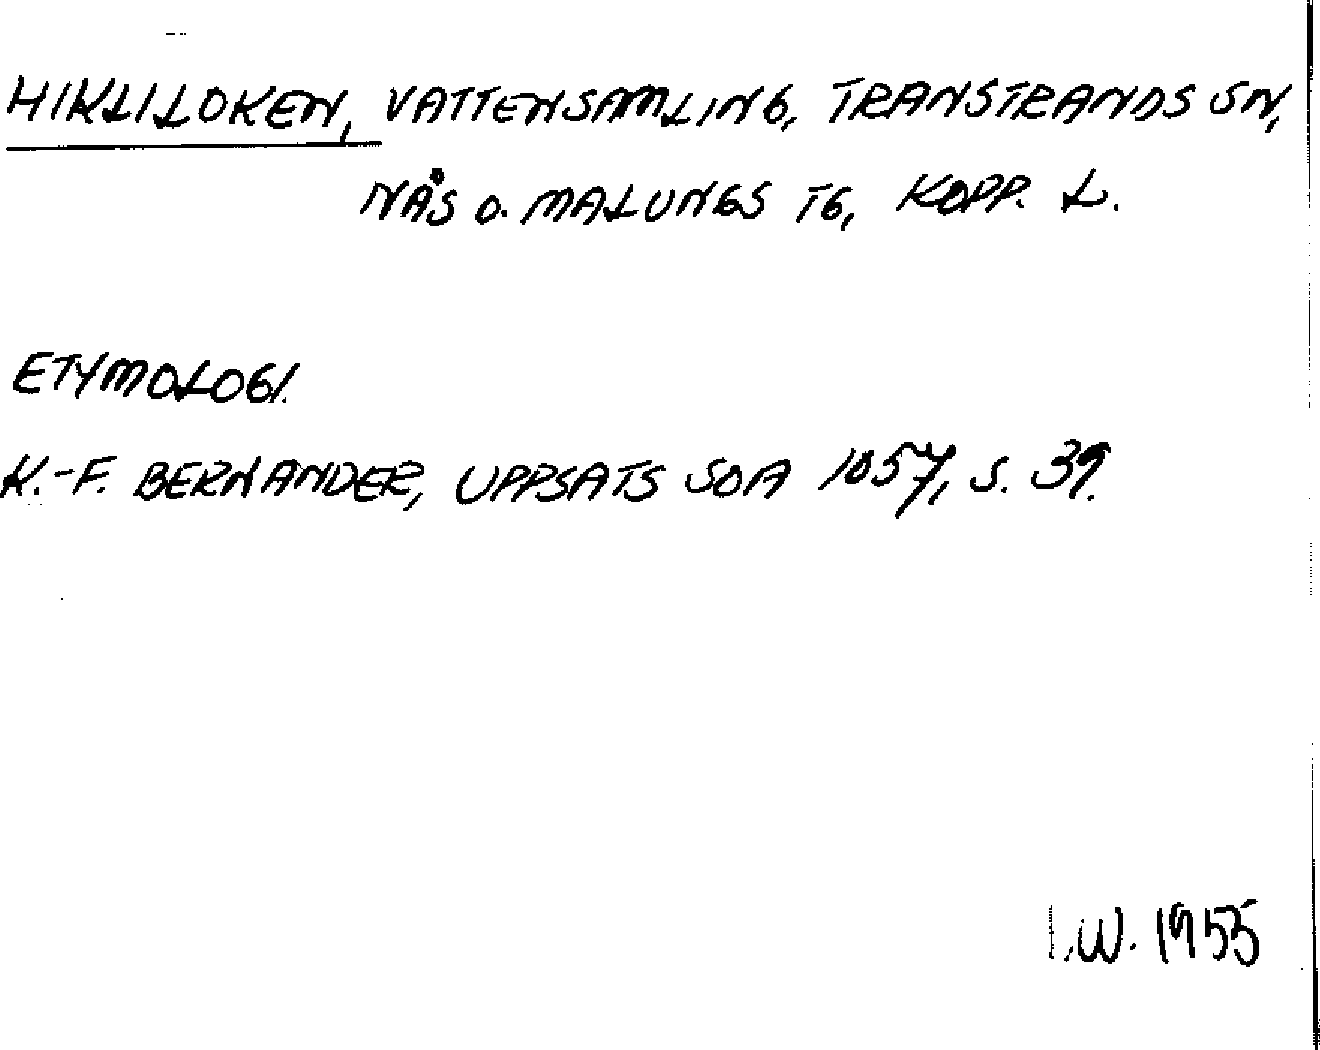 HIKLILOKEN, VATTENSAMLING, TRANSTRANDS SN,
NÅS O. MALUNGS TG, KOPP. L.
ETYMOLOGI.
K.-F. BERNANDER, UPPSATS SOA 1057, S. 39.
I.W. 1955